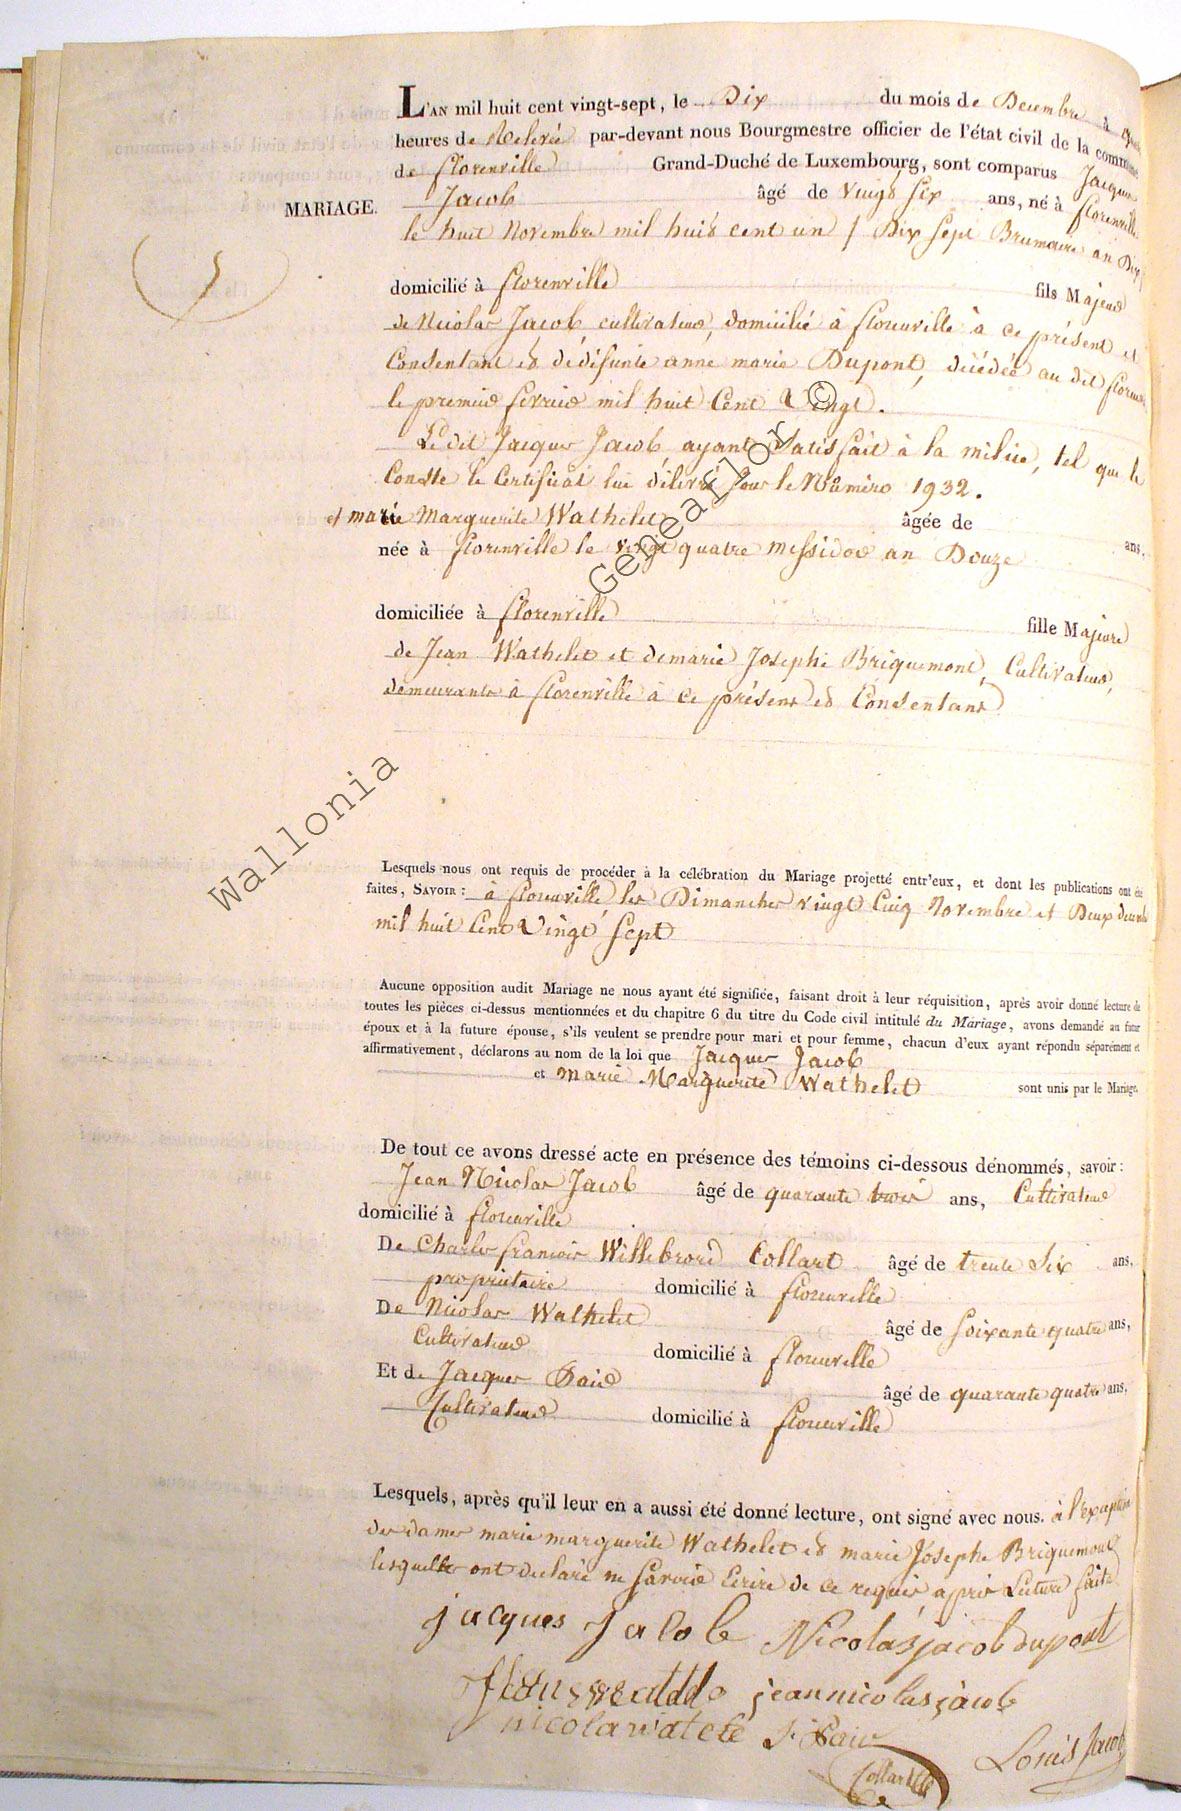 L'an mil huit cent vingt-sept, le Dix du mois de Decembre à
heures de Relevée par-devant nous Bourgmestre officier de l'état civil de la commune
de florenville Grand-Duché de Luxembourg, sont comparus Jacques
MARIAGE. Jacob âgé de vingt six ans, né à florenville
le huit Novembre mil huit cent un / Dix sept Brumaire an Dix
domicilié à florenville fils Majeur
de Nicolas Jacob cultivateur, domicilié à florenville à ce présent et
Consentant et de défunte anne marie Dupont, décédée au dit
le premier février mil huit Cent Vingt.
Le dit Jacques Jacob ayant Satisfait à la milice, tel que le
Conste le Certificat lui délivré sous le Numéro 1932.
et marie Marguerite Wathelet âgée de ans,
née à florenville le vingt quatre messidor an Douze
domiciliée à florenville fille Majeure
de Jean Wathelet et de marie Josephe Briquemont, Cultivateurs,
demeurants à florenville à ce présent et Consentant
Wallonia Geneaflor ©
Lesquels nous ont requis de procéder à la célébration du Mariage projetté entr'eux, et dont les publications ont été
faites, Savoir : à florenville les Dimanches vingt Cinq Novembre et Deux
mil huit Cent Vingt Sept
Aucune opposition audit Mariage ne nous ayant été signifiée, faisant droit à leur réquisition, après avoir donné lecture de
toutes les pièces ci-dessus mentionnées et du chapitre 6 du titre du Code civil intitulé du Mariage, avons demandé au futur
époux et à la future épouse, s'ils veulent se prendre pour mari et pour femme, chacun d'eux ayant répondu séparément et
affirmativement, déclarons au nom de la loi que Jacques Jacob
et Marie Marguerite Wathelet sont unis par le Mariage.
De tout ce avons dressé acte en présence des témoins ci-dessous dénommés, savoir :
Jean Nicolas Jacob âgé de quarante trois ans, Cultivateur
domicilié à florenville
De Charles françois Willebrord Collart âgé de trente Six ans,
propriétaire domicilié à florenville
De Nicolas Wathelet âgé de Soixante quatre ans,
Cultivateur domicilié à florenville
Et de Jacques âgé de quarante quatre ans,
Cultivateur domicilié à florenville
Lesquels, après qu'il leur en a aussi été donné lecture, ont signé avec nous. à l'Exception
des dames marie marguerite Wathelet et marie Josephe Briquemont
lesquelles ont déclaré ne savoir Ecrire de ce requis après Lecture faite
jacques Jacob Nicolas jacob dupont
jean nicolas jacob
Louis Jacob
Collart